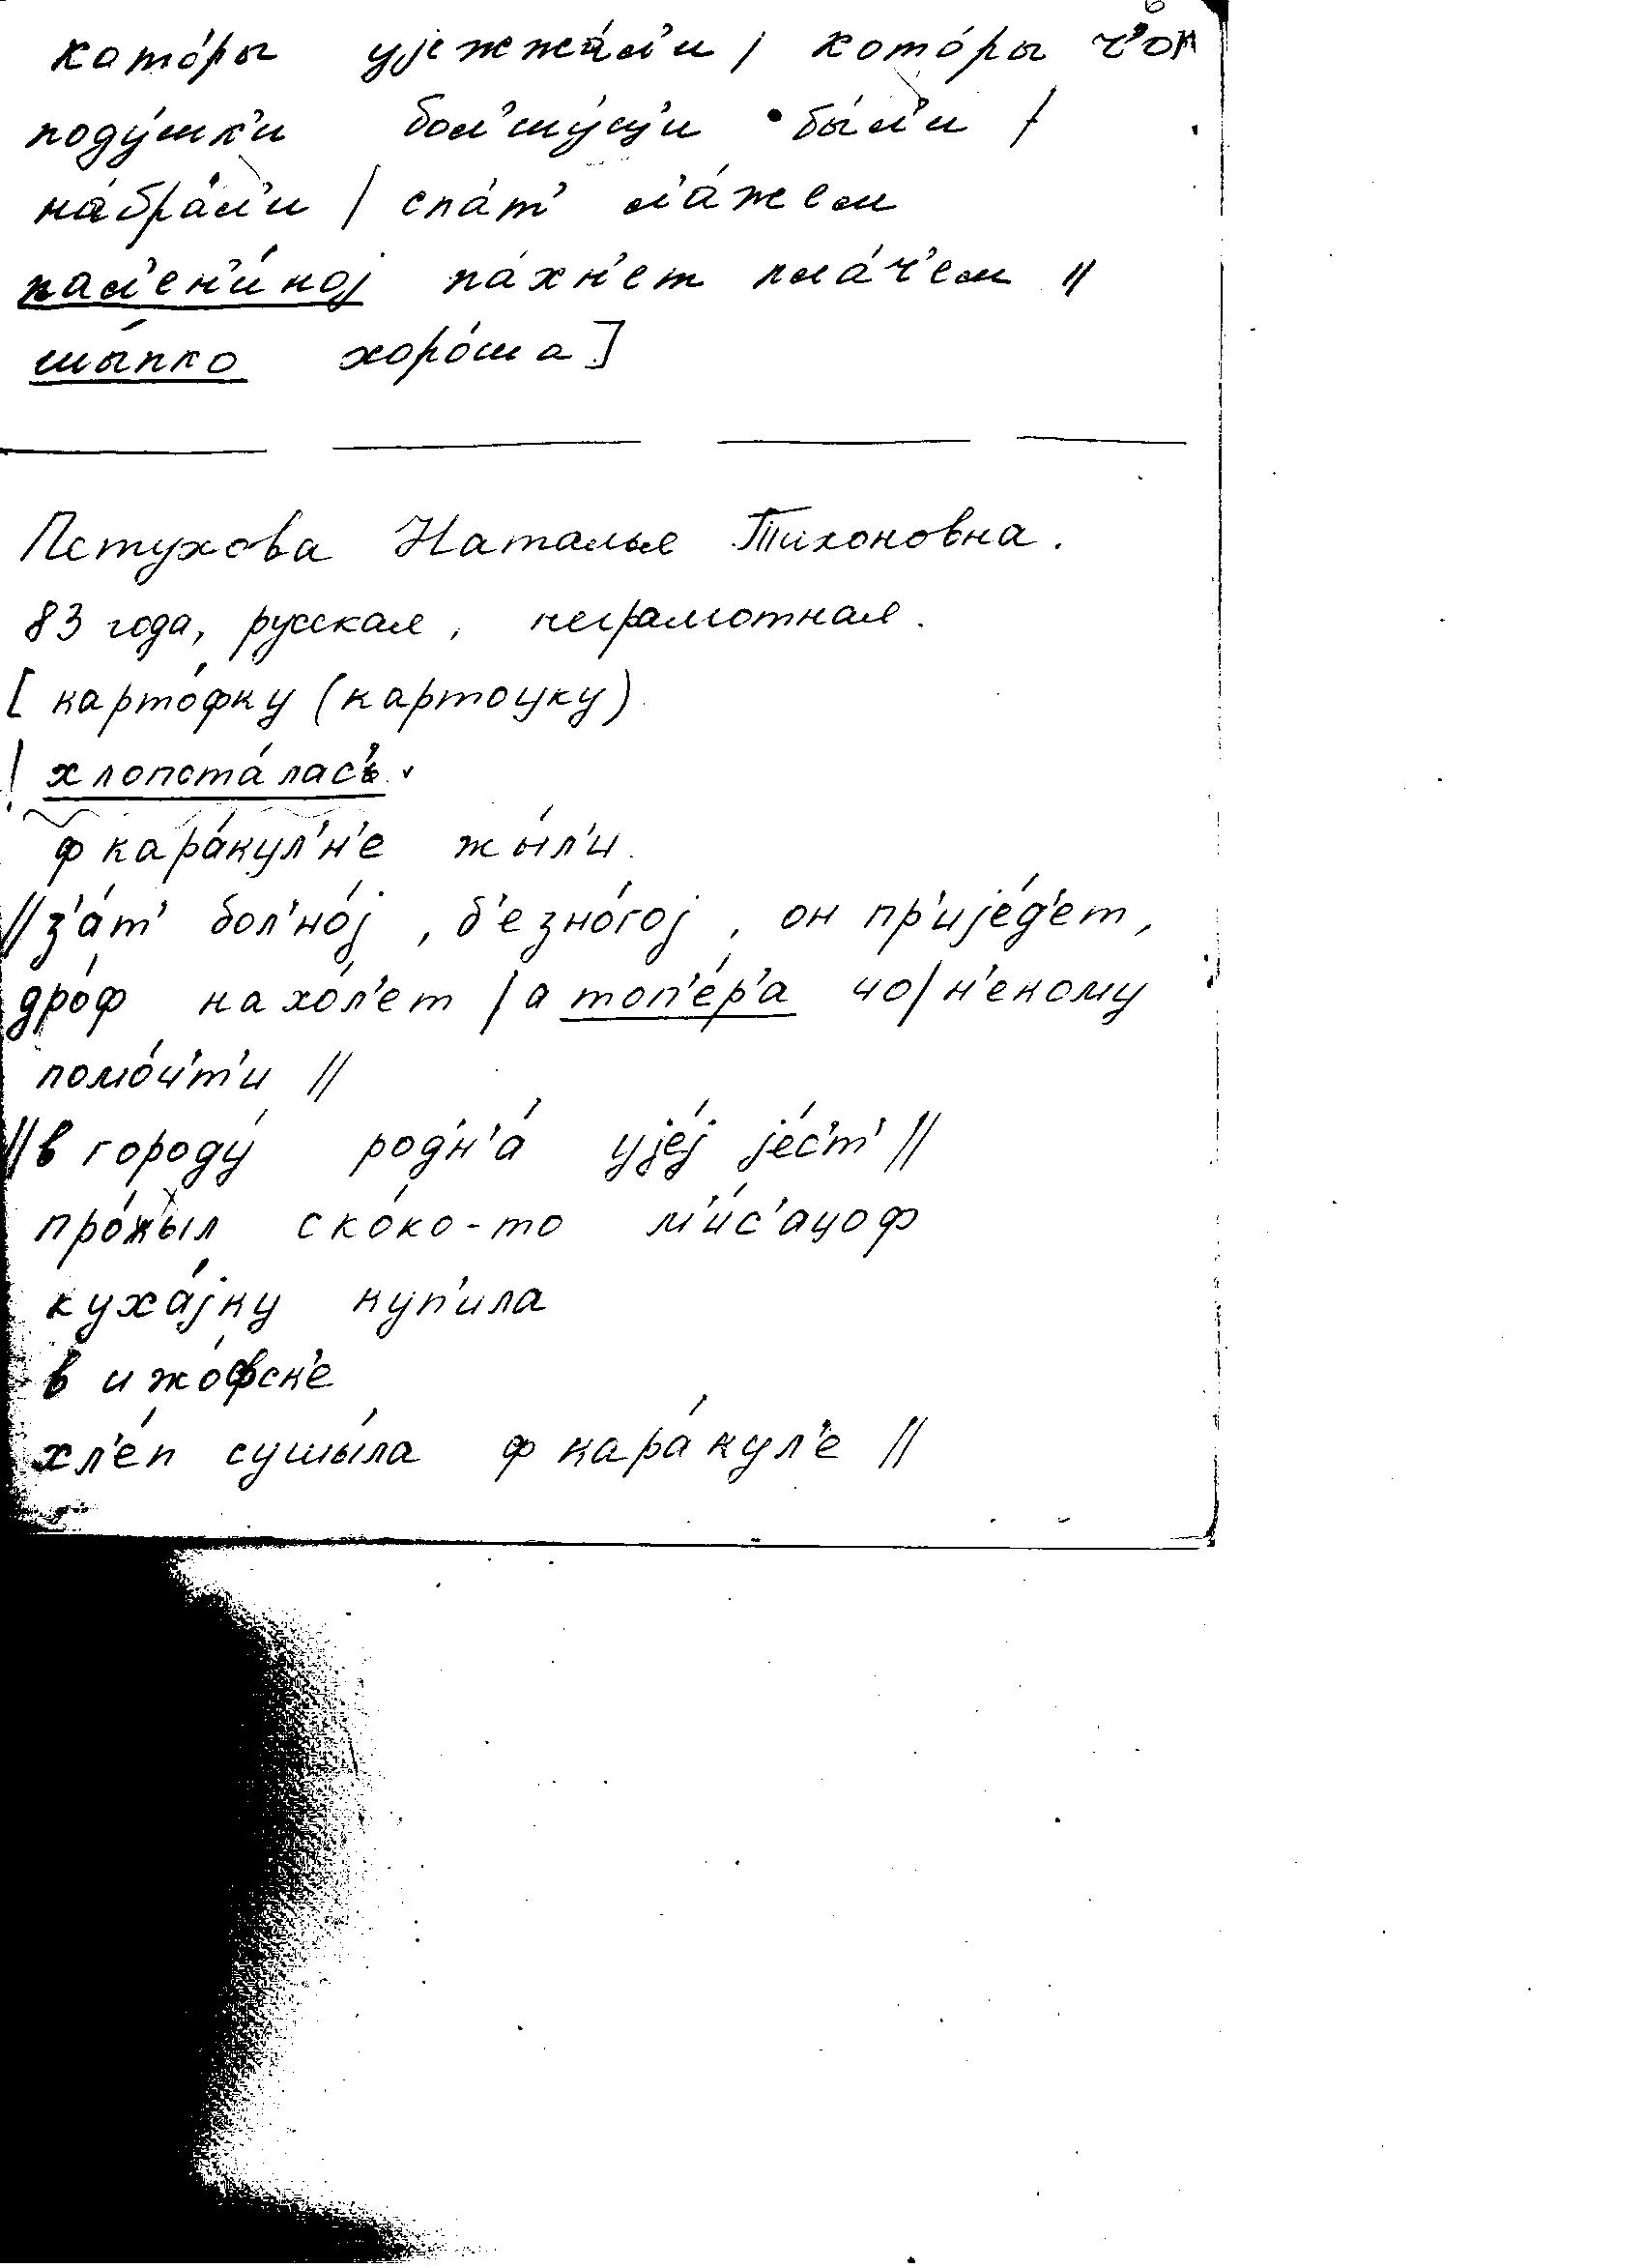 като́ры уjежжа́л'и / кото́ры ч'ок
поду́шк'и бол'шу́щ'и бы́л'и /
на́бра́л'и / спа́т' л'а́жем
пал'ен'и́ноj па́хн'ет пла́ч'ем //
шы́пко хоро́ша]
Петухова Наталья Тихоновна.
83 года, русская, неграмотная.
[карто́фку (картоуку)
хлопота́лас'
ф кара́кул'н'е жы́л'и.
//з'а́т' бол'но́j, б'езно́гоj, он пр'иjе́д'ет,
дро́ф нахо́л'ет /а топ'е́р'а чо/н'екому
помо́ч'т'и //
//в городу́ родн'а́ уjе́j jе́с'т' //
про́жыл ско́ко-то м'и́с'ацоф
куха́jку куп'ила
в ижо́фск'е
хл'е́п сушы́ла ф кара́кул'е //